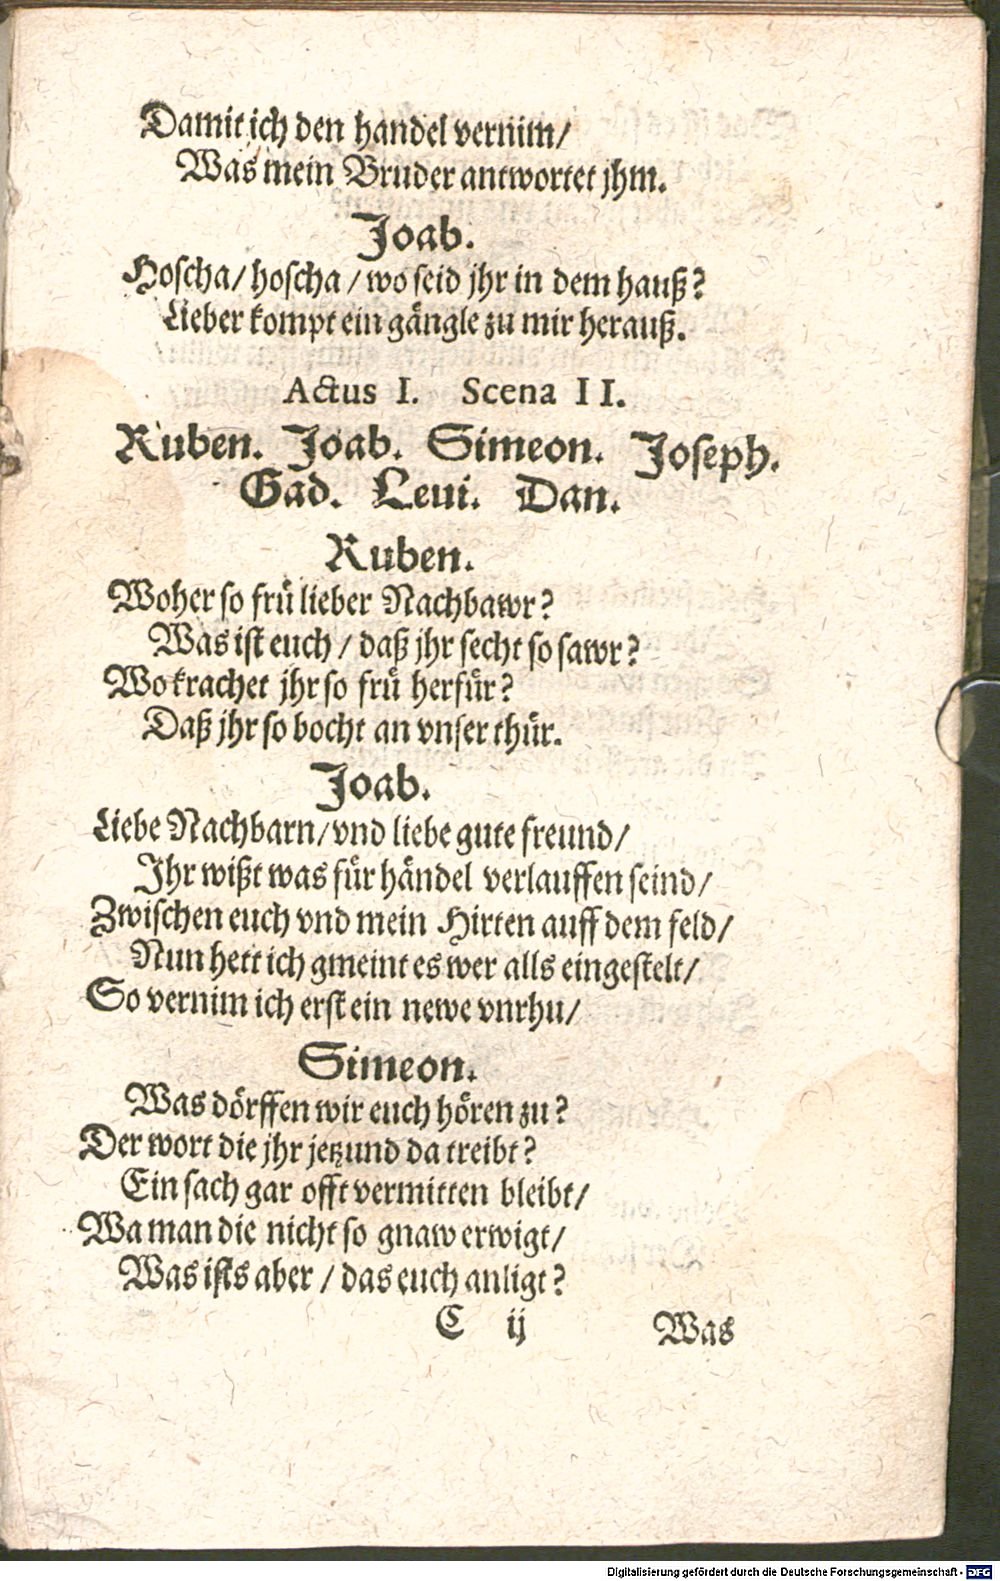 Damit ich den handel vernim/
Was mein Bruder antwortet jhm.
Joab.
Hoscha/ hoscha / wo seid jhr in dem hauß?
Lieber kompt ein gängle zu mir herauß.
Actus I. Scena II.
Ruben. Joab. Simeon. Joseph.
Gad. Leui. Dan.
Ruben.
Woher so frü lieber Nachbawr?
Was ist euch / daß jhr secht so sawr?
Wo krachet jhr so frü herfür?
Daß jhr so bocht an vnser thür.
Joab.
Liebe Nachbarn/ vnd liebe gute freund/
Ihr wißt was für händel verlauffen seind/
Zwischen euch vnd mein Hirten auff dem feld/
Nun hett ich gmeint es wer alls eingestelt/
So vernim ich erst ein newe vnrhu/
Simeon.
Was dörffen wir euch hören zu?
Der wort die jhr jetzund da treibt?
Ein sach gar offt vermitten bleibt/
Wa man die nicht so gnaw erwigt/
Was ists aber / das euch anligt?
C ij Was
Digitalisierung gefördert durch die Deutsche Forschungsgemeinschaft - DFG